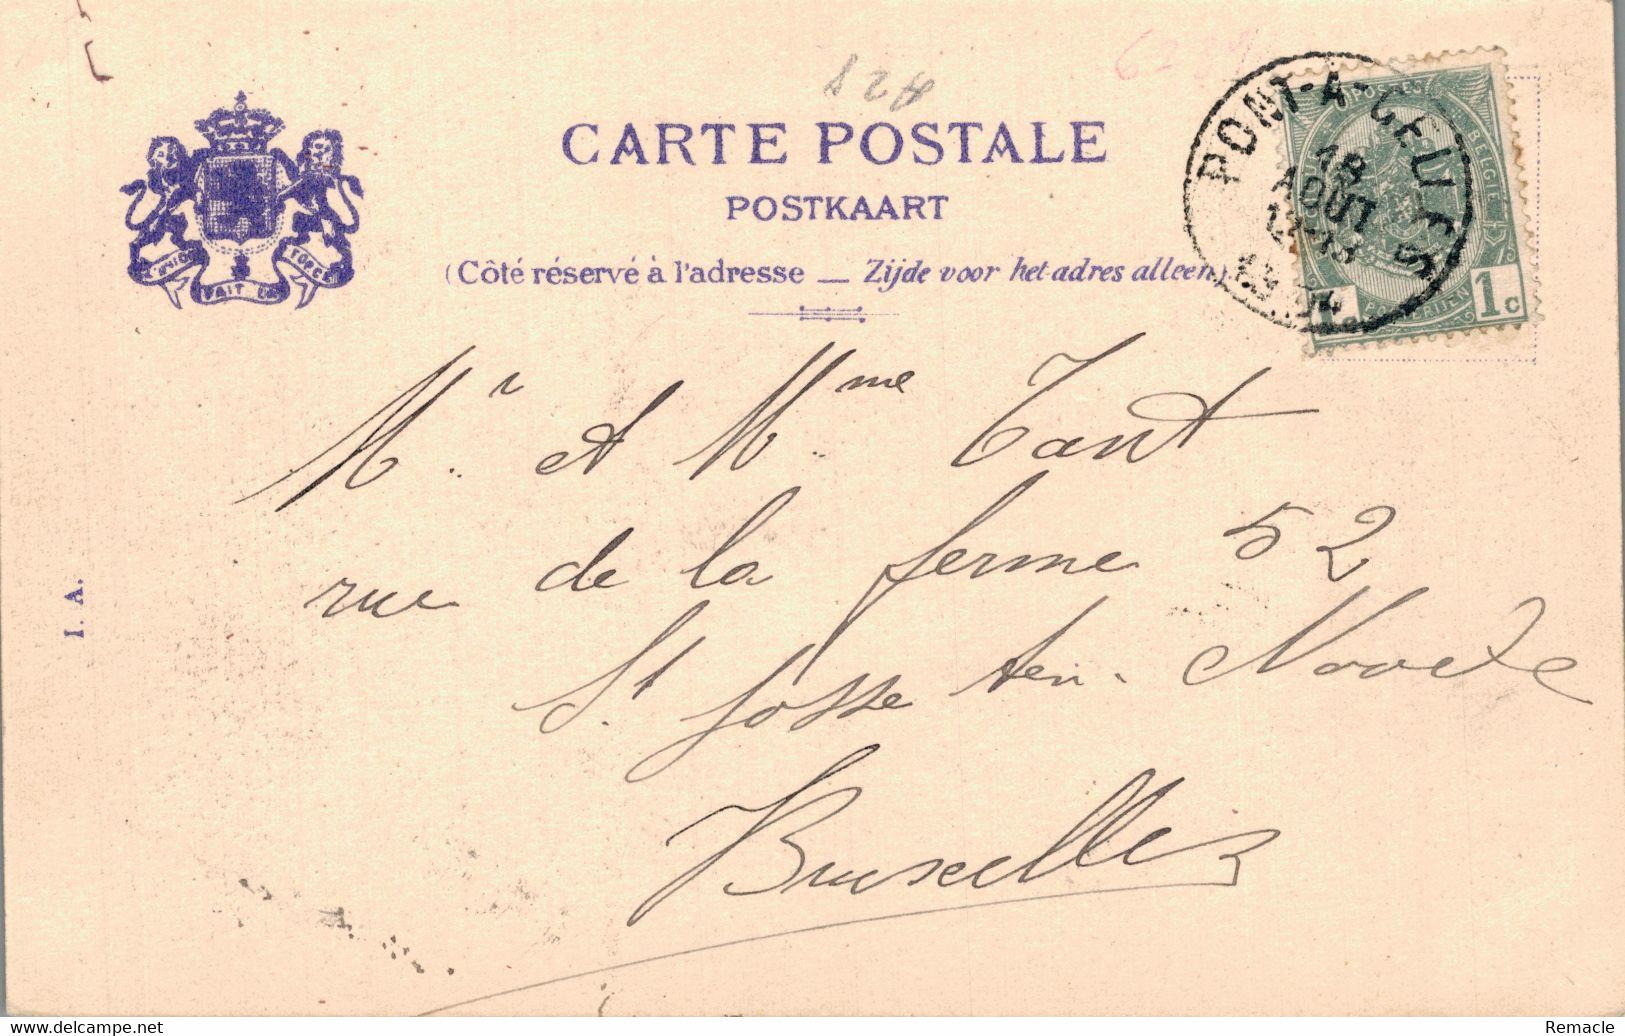 824
CARTE POSTALE
POSTKAART
(Côté réservé à l'adresse — Zijde voor het adres alleen)
PONT-A-CELLES
18
AOUT
12-13
POSTES
BELGIE
1c 1c
UNION FAIT LA FORCE
Mr. et Mme. Tant
rue de la ferme 52
St. Josse ten-Noode
Bruxelles
I. A.
www.delcampe.net
Remacle